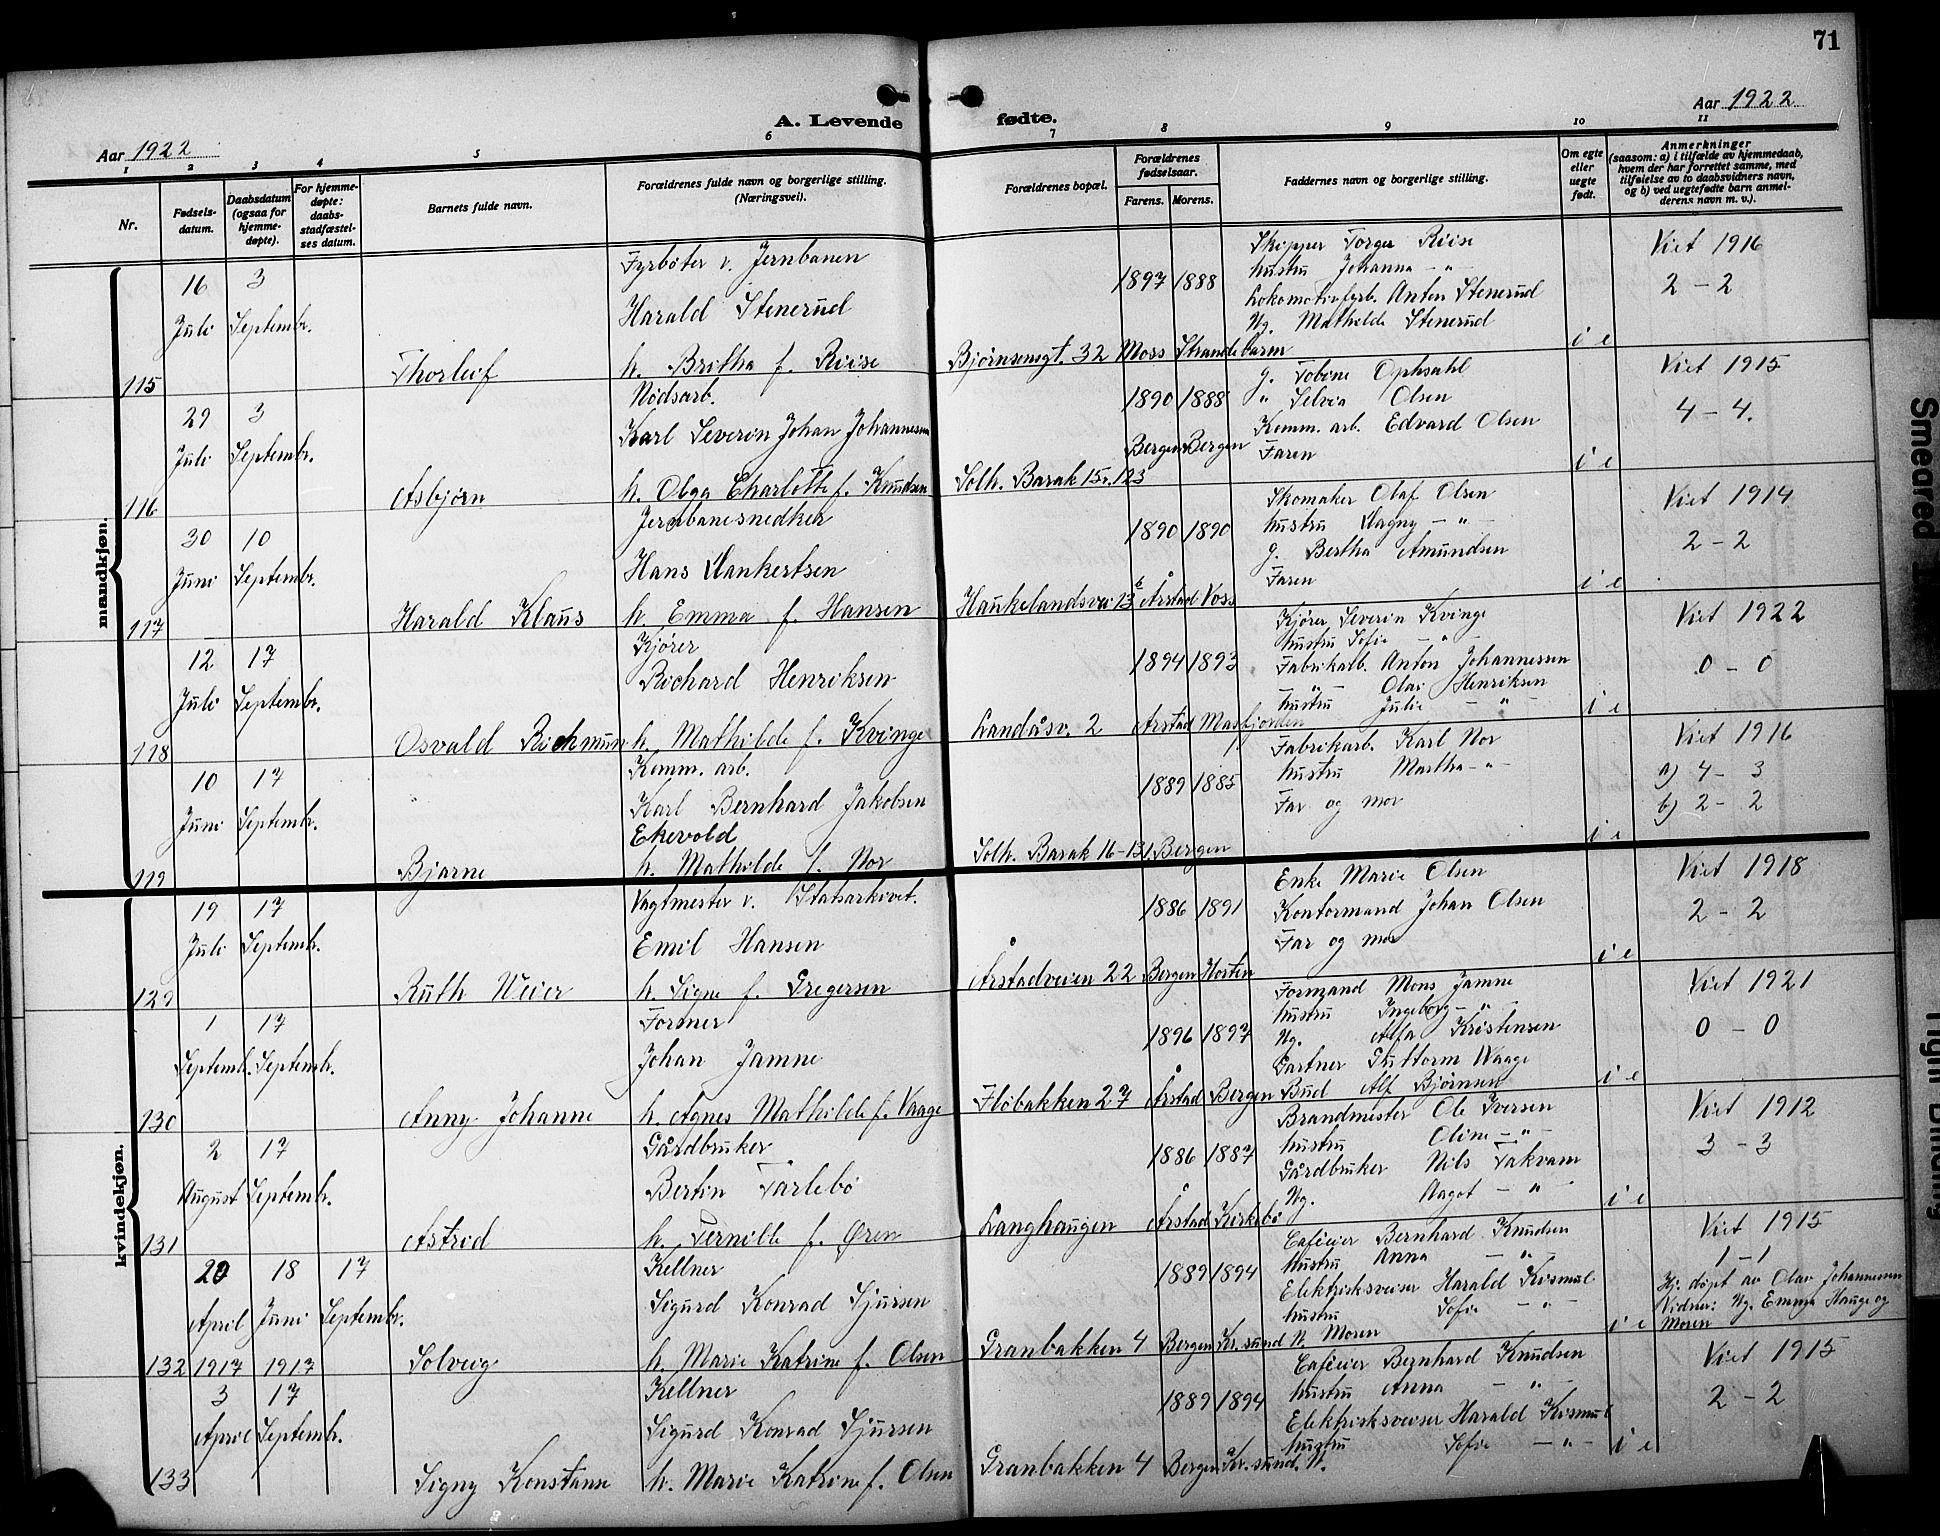 71
Aar 1922
A. Levende fødte.
Aar 1922
1 2 3 4 5 6 7 8 9 10 11
Nr.
Fødsels-
datum.
Daabsdatum
(ogsaa for
hjemme-
døpte).
For hjemme-
døpte:
daabs-
stadfæstel-
ses datum.
Barnets fulde navn.
Forældrenes fulde navn og borgerlige stilling.
(Næringsvei).
Forældrenes bopæl.
Forældrenes
fødselsaar.
Farens. Morens.
Faddernes navn og borgerlige stilling.
Om egte
eller
uegte
født.
Anmerkninger
(saasom: a) i tilfælde av hjemmedaab,
hvem der har forrettet samme, med
tilføielse av to daabsvidners navn,
og b) ved uegtefødte barn anmel-
derens navn m. v.).
mandkjøn.
115
16 Juli
3 Septembr.
Thorleif
Fyrbøter v. Jernbanen
Harald Stenerud
h. Britha f. Riise
Bjørnsensgt. 32
1897 1888
Moss Strandebarm
Skipper Torger Riise
hustru Johanna - " -
Lokomotivfyrb. Anton Stenerud
Ug. Mathilde Stenerud
i e
Viet 1916
2 - 2
116
29 Juli
3 Septembr.
Asbjørn
Nødsarb.
Karl Severin Johan Johannesen
h. Olga Charlotte f. Knudsen
Solh. Barak 15v. 123
1890 1888
Bergen Bergen
g. Tobine Ophsahl
" Selvia Olsen
Komm. arb. Edvard Olsen
Faren
i e
Viet 1915
4 - 4.
117
30 Juni
10 Septembr.
Harald Klaus
Jernbanesnedker
Hans Vankertsen
h. Emma f. Hansen
Haukelandsvei 13 b
1890 1890
Årstad Voss
Skomaker Olaf Olsen
hustru Dagny - " -
g. Bertha Amundsen
Faren
i e
Viet 1914
2 - 2
118
12 Juli
17 Septembr.
Osvald Rickmun
Kjører
Richard Henriksen
h. Mathilde f. Kvinge
Landåsv. 2
1894 1893
Årstad Masfjorden
Kjører Severin Kvinge
hustru Sofie - " -
Fabrikarb. Anton Johannessen
- " - Olav Henriksen
hustru Julie - " -
i e
Viet 1922
0 - 0
119
10 Juni
17 Septembr.
Bjarne
Komm. arb.
Karl Bernhard Jakobsen
Ekevold
h. Mathilde f. Nor
Solh. Barak 16-131
1889 1885
Bergen
Fabrikarb. Karl Nor
hustru Martha - " -
Far og mor
i e
Viet 1916
a) 4 - 3
b) 2 - 2
kvindekjøn.
129
19 Juli
17 Septembr.
Ruth Weier
Vagtmester v. Statsarkivet.
Emil Hansen
h. Signe f. Gregersen
Årstadveien 22
1886 1891
Bergen Horten
Enke Marie Olsen
Kontormand Johan Olsen
Far og mor
i e
Viet 1918
2 - 2
130
1 Septemb.
17 Septembr.
Anny Johanne
Formner
Johan Jamne
h. Agnes Mathilde f. Vaage
Fløbakken 27
1896 1897
Årstad Bergen
Formand Mons Jamne
hustru Ingeborg - " -
Ug. Alfa Kristensen
Gartner Guttorm Waage
Bud Alf Bjørnsen
i e
Viet 1921
0 - 0
131
2 August
17 Septembr.
Astrid
Gårdbruker
Bertin Tarlebø
h. Pernille f. Øren
Langhaugen
1886 1887
Årstad Kirkebø
Brandmester Ole Iversen
hustru Oline - " -
Gårdbruker Nils Takvam
Ug. Aagot - " -
i e
Viet 1912
3 - 3
132
20 April 1917
18 Juni 1917
17 Septembr.
Solveig
Kellner
Sigurd Konrad Sjursen
h. Marie Katrine f. Olsen
Granbakken 4
1889 1894
Bergen Kr. sund N.
Caféeier Bernhard Knudsen
hustru Anna - " -
Elektriskveiser Harald Kismul
hustru Sofie - " -
Moren
i e
Viet 1915
1 - 1
Hj. døpt av Olav Johannesen
Vidner: Ug. Emma Hauge og
Moren
133
3 April
17 Septembr.
Signy Konstanse
Kellner
Sigurd Konrad Sjursen
h. Marie Katrine f. Olsen
Granbakken 4
1889 1894
Bergen Kr. sund. N.
Caféeier Bernhard Knudsen
hustru Anna - " -
Elektriskveiser Harald Kismul
hustru Sofie - " -
i e
Viet 1915
2 - 2
Smeared
Tight Binding